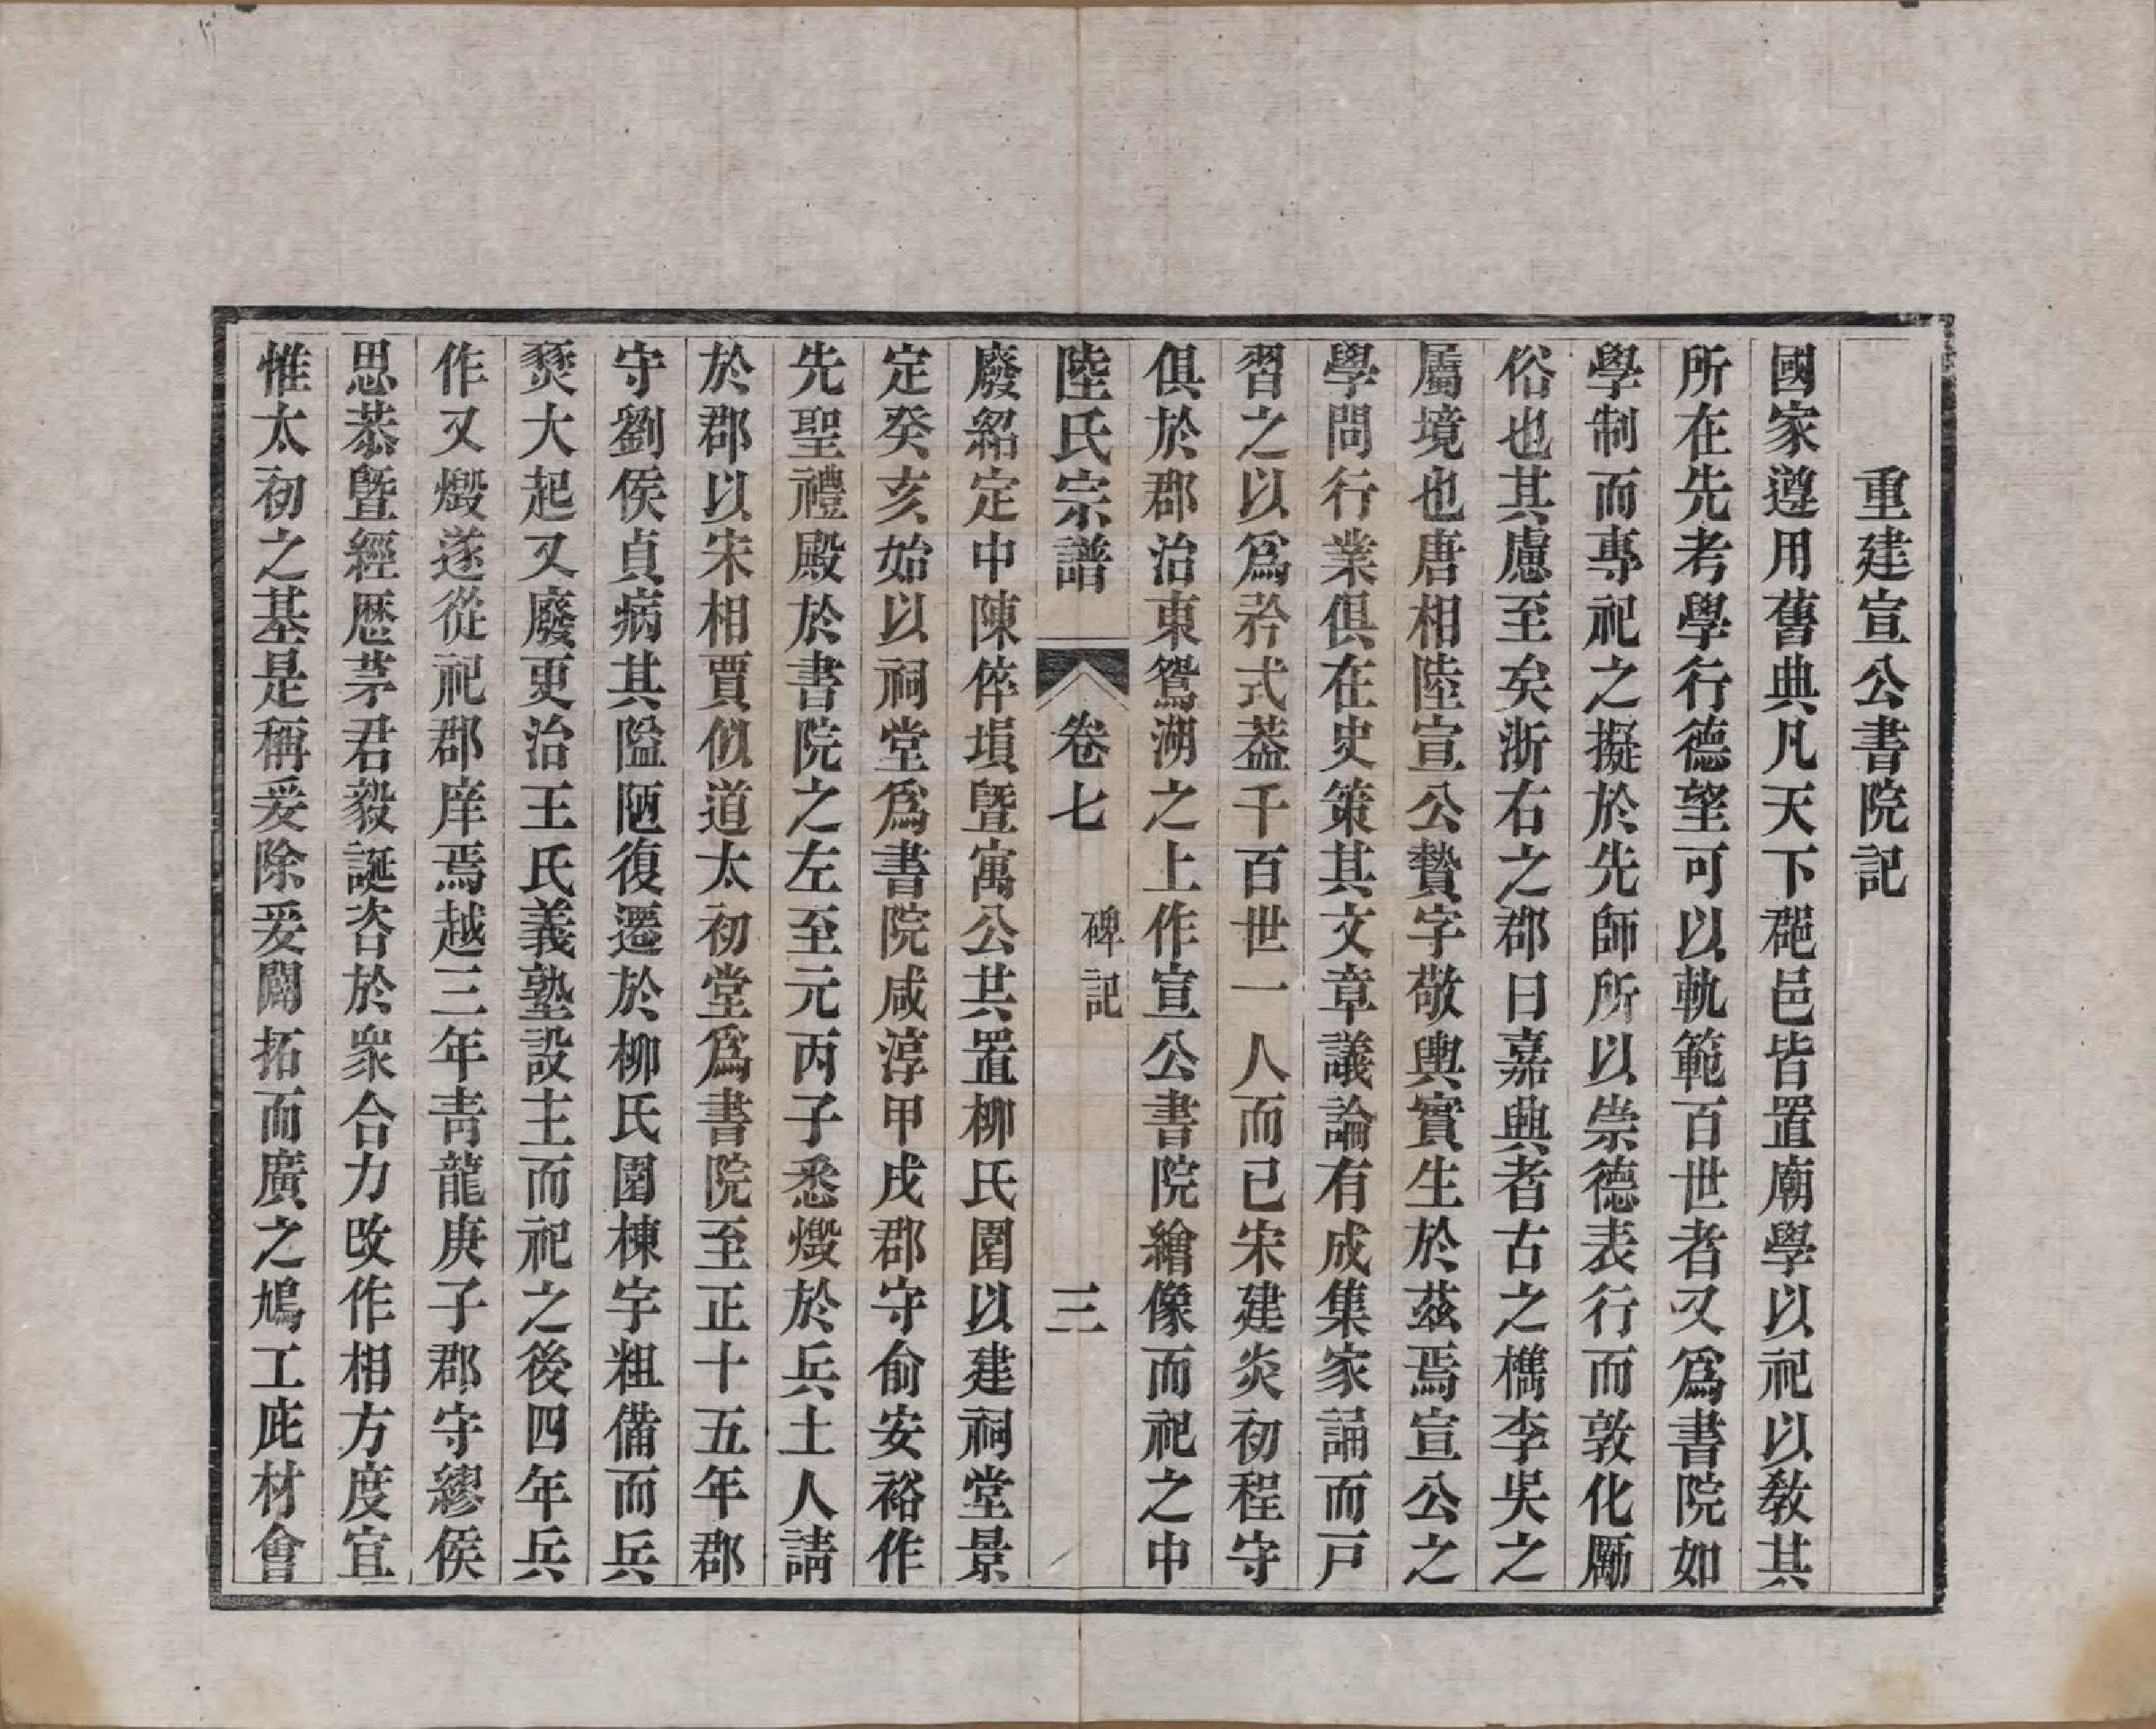 重建宣公書院記
國家遵用舊典凡天下郡邑皆置廟學以祀以教其
所在先考學行德望可以軌範百世者又爲書院如
學制而專祀之擬於先師所以崇德表行而敦化厲
俗也其慮至矣浙右之郡曰嘉興者古之檇李吳之
屬境也唐相陸宣公贄字敬輿實生於茲焉宣公之
學問行業俱在史策其文章議論有成集家誦而戸
習之以爲矜式葢千百世一人而已宋建炎初程守
俱於郡治東鴛湖之上作宣公書院繪像而祀之中
陸氏宗譜 卷七 碑記 三
廢紹定中陳倅塤暨寓公共置柳氏園以建祠堂景
定癸亥始以祠堂爲書院咸淳甲戌郡守俞安裕作
先聖禮殿於書院之左至元丙子悉燬於兵土人請
於郡以宋相賈似道太初堂爲書院至正十五年郡
守劉侯貞病其隘陋復遷於柳氏園棟宇粗備而兵
燹大起又廢更治王氏義塾設主而祀之後四年兵
作又燬遂從祀郡庠焉越三年青龍庚子郡守繆侯
思恭暨經歷茅君毅誕咨於衆合力改作相方度宜
惟太初之基是稱爰除爰闢拓而廣之鳩工庀材會